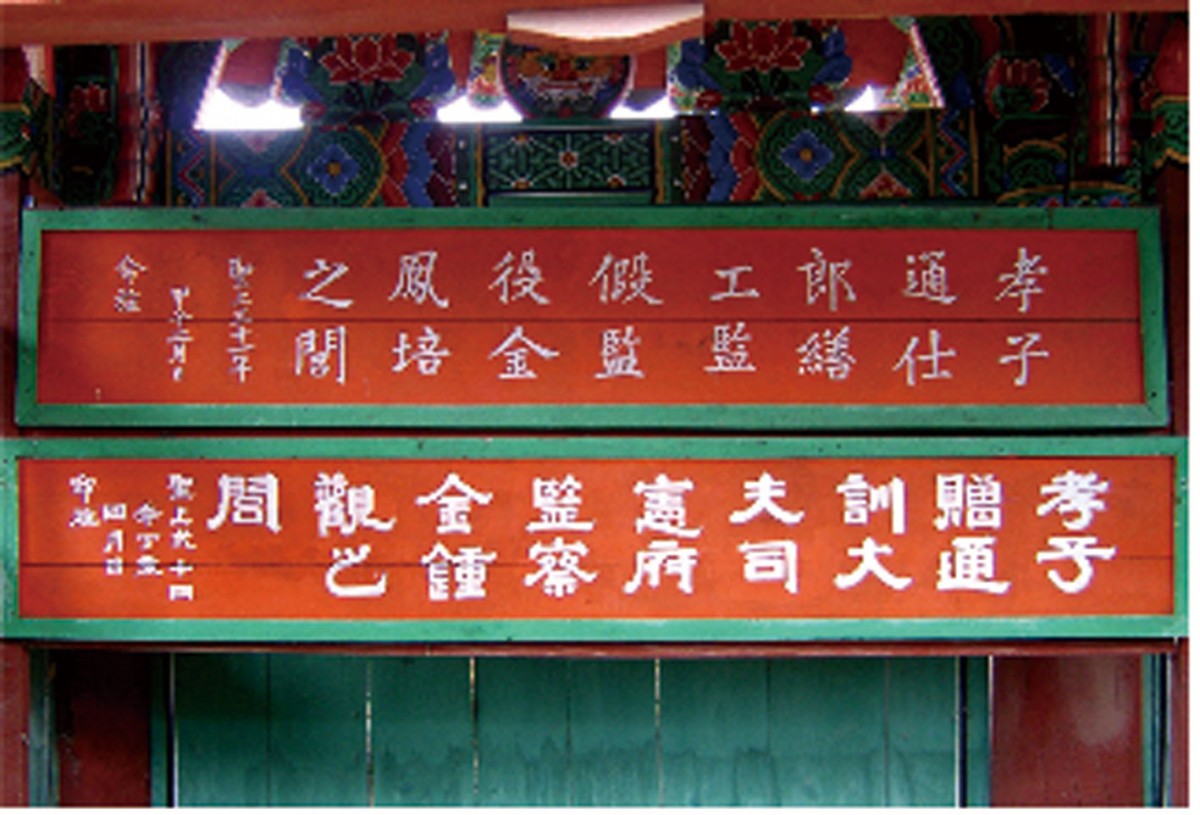 孝子
通仕
郎繕
工監
假監
役金
鳳培
之閭
月日
命旌
孝子
贈通
訓大
夫司
憲府
監察
金鍾
觀之
閭
聖上 十四
年丁丑
四月日
命旌